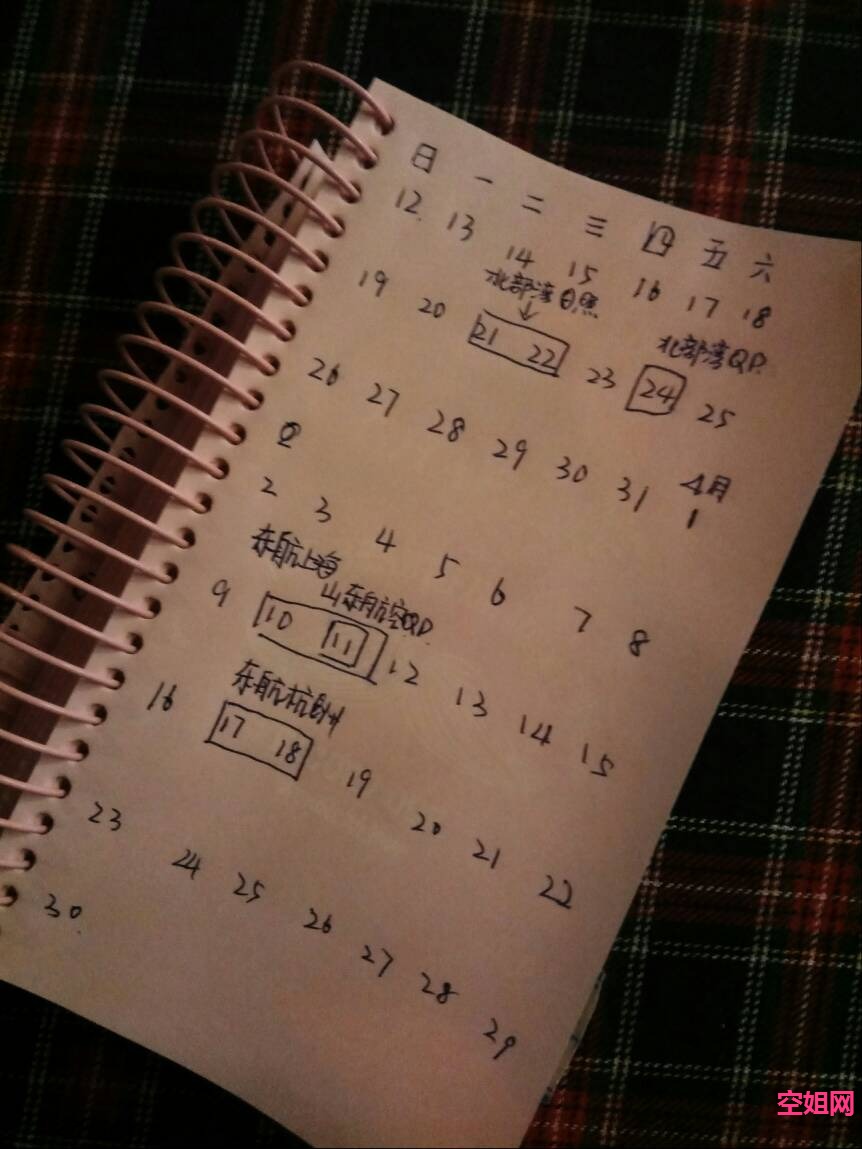 日 一 二 三 四 五 六
12. 13 14 15 16 17 18
北部湾日照
北部湾QD.
19 20 21 22 23 24 25
4月
26 27 28 29 30 31 1
2 3 4 5 6 7 8
东航上海
山东航空QD.
9 10 11 12 13 14 15
东航杭州
16 17 18 19 20 21 22
23 24 25 26 27 28 29
30.
空姐网